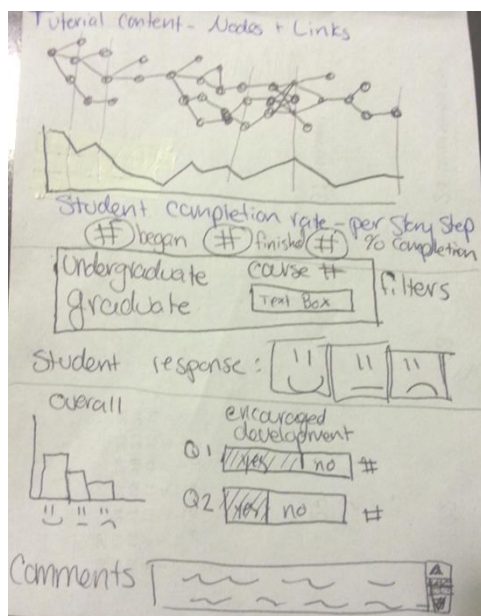 Tutorial Content - Nodes + Links
Student completion rate - per Story Step
# began # finished # % completion
Undergraduate course #
graduate Text Box
filters
Student response:
overall
encouraged
development
Q1 yes no #
Q2 yes no #
Comments